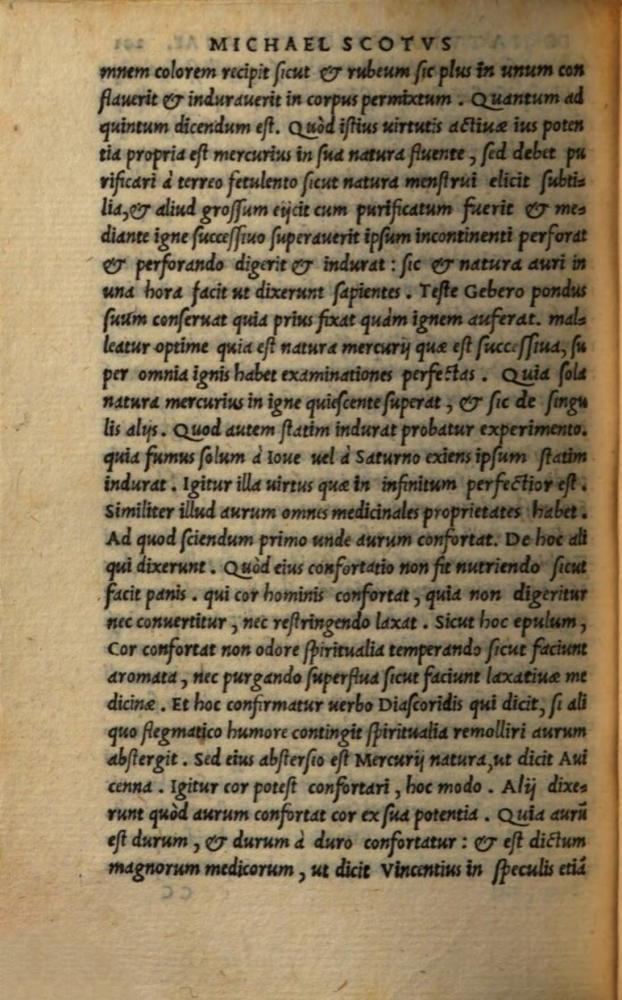 MICHAEL SCOTVS
mnem colorem recipit ſicut & rubeum ſic plus in unum con
flauerit & indurauerit in corpus permixtum . Quantum ad
quintum dicendum eſt. Quòd iſtius uirtutis actiuæ ius poten
tia propria eſt mercurius in ſua natura fluente , ſed debet pu
rificari à terreo fetulento ſicut natura menſtrui elicit ſubti=
lia,& aliud groſſum eijcit cum purificatum fuerit & me=
diante igne ſucceſſiuo ſuperauerit ipſum incontinenti perforat
& perforando digerit & indurat : ſic & natura auri in
una hora facit ut dixerunt ſapientes . Teſte Gebero pondus
ſuum conſeruat quia prius fixat quàm ignem auferat. mal=
leatur optime quia eſt natura mercurij quæ eſt ſucceſſiua, ſu
per omnia ignis habet examinationes perfectas . Quia ſola
natura mercurius in igne quieſcente ſuperat , & ſic de ſingu
lis alijs . Quod autem ſtatim indurat probatur experimento.
quia fumus ſolum à Ioue uel à Saturno exiens ipſum ſtatim
indurat . Igitur illa uirtus quæ in infinitum perfectior eſt .
Similiter illud aurum omnes medicinales proprietates habet .
Ad quod ſciendum primo unde aurum confortat. De hoc ali
qui dixerunt . Quòd eius confortatio non fit nutriendo ſicut
facit panis . qui cor hominis confortat , quia non digeritur
nec conuertitur , nec reſtringendo laxat . Sicut hoc epulum ,
Cor confortat non odore ſpiritualia temperando ſicut faciunt
aromata , nec purgando ſuperflua ſicut faciunt laxatiuæ me
dicinæ . Et hoc confirmatur uerbo Diaſcoridis qui dicit, ſi ali
quo flegmatico humore contingit ſpiritualia remolliri aurum
abſtergit . Sed eius abſterſio eſt Mercurij natura,ut dicit Aui
cenna . Igitur cor poteſt confortari , hoc modo . Alij dixe=
runt quòd aurum confortat cor ex ſua potentia . Quia aurū
eſt durum , & durum à duro confortatur : & eſt dictum
magnorum medicorum , ut dicit Vincentius in ſpeculis etiā